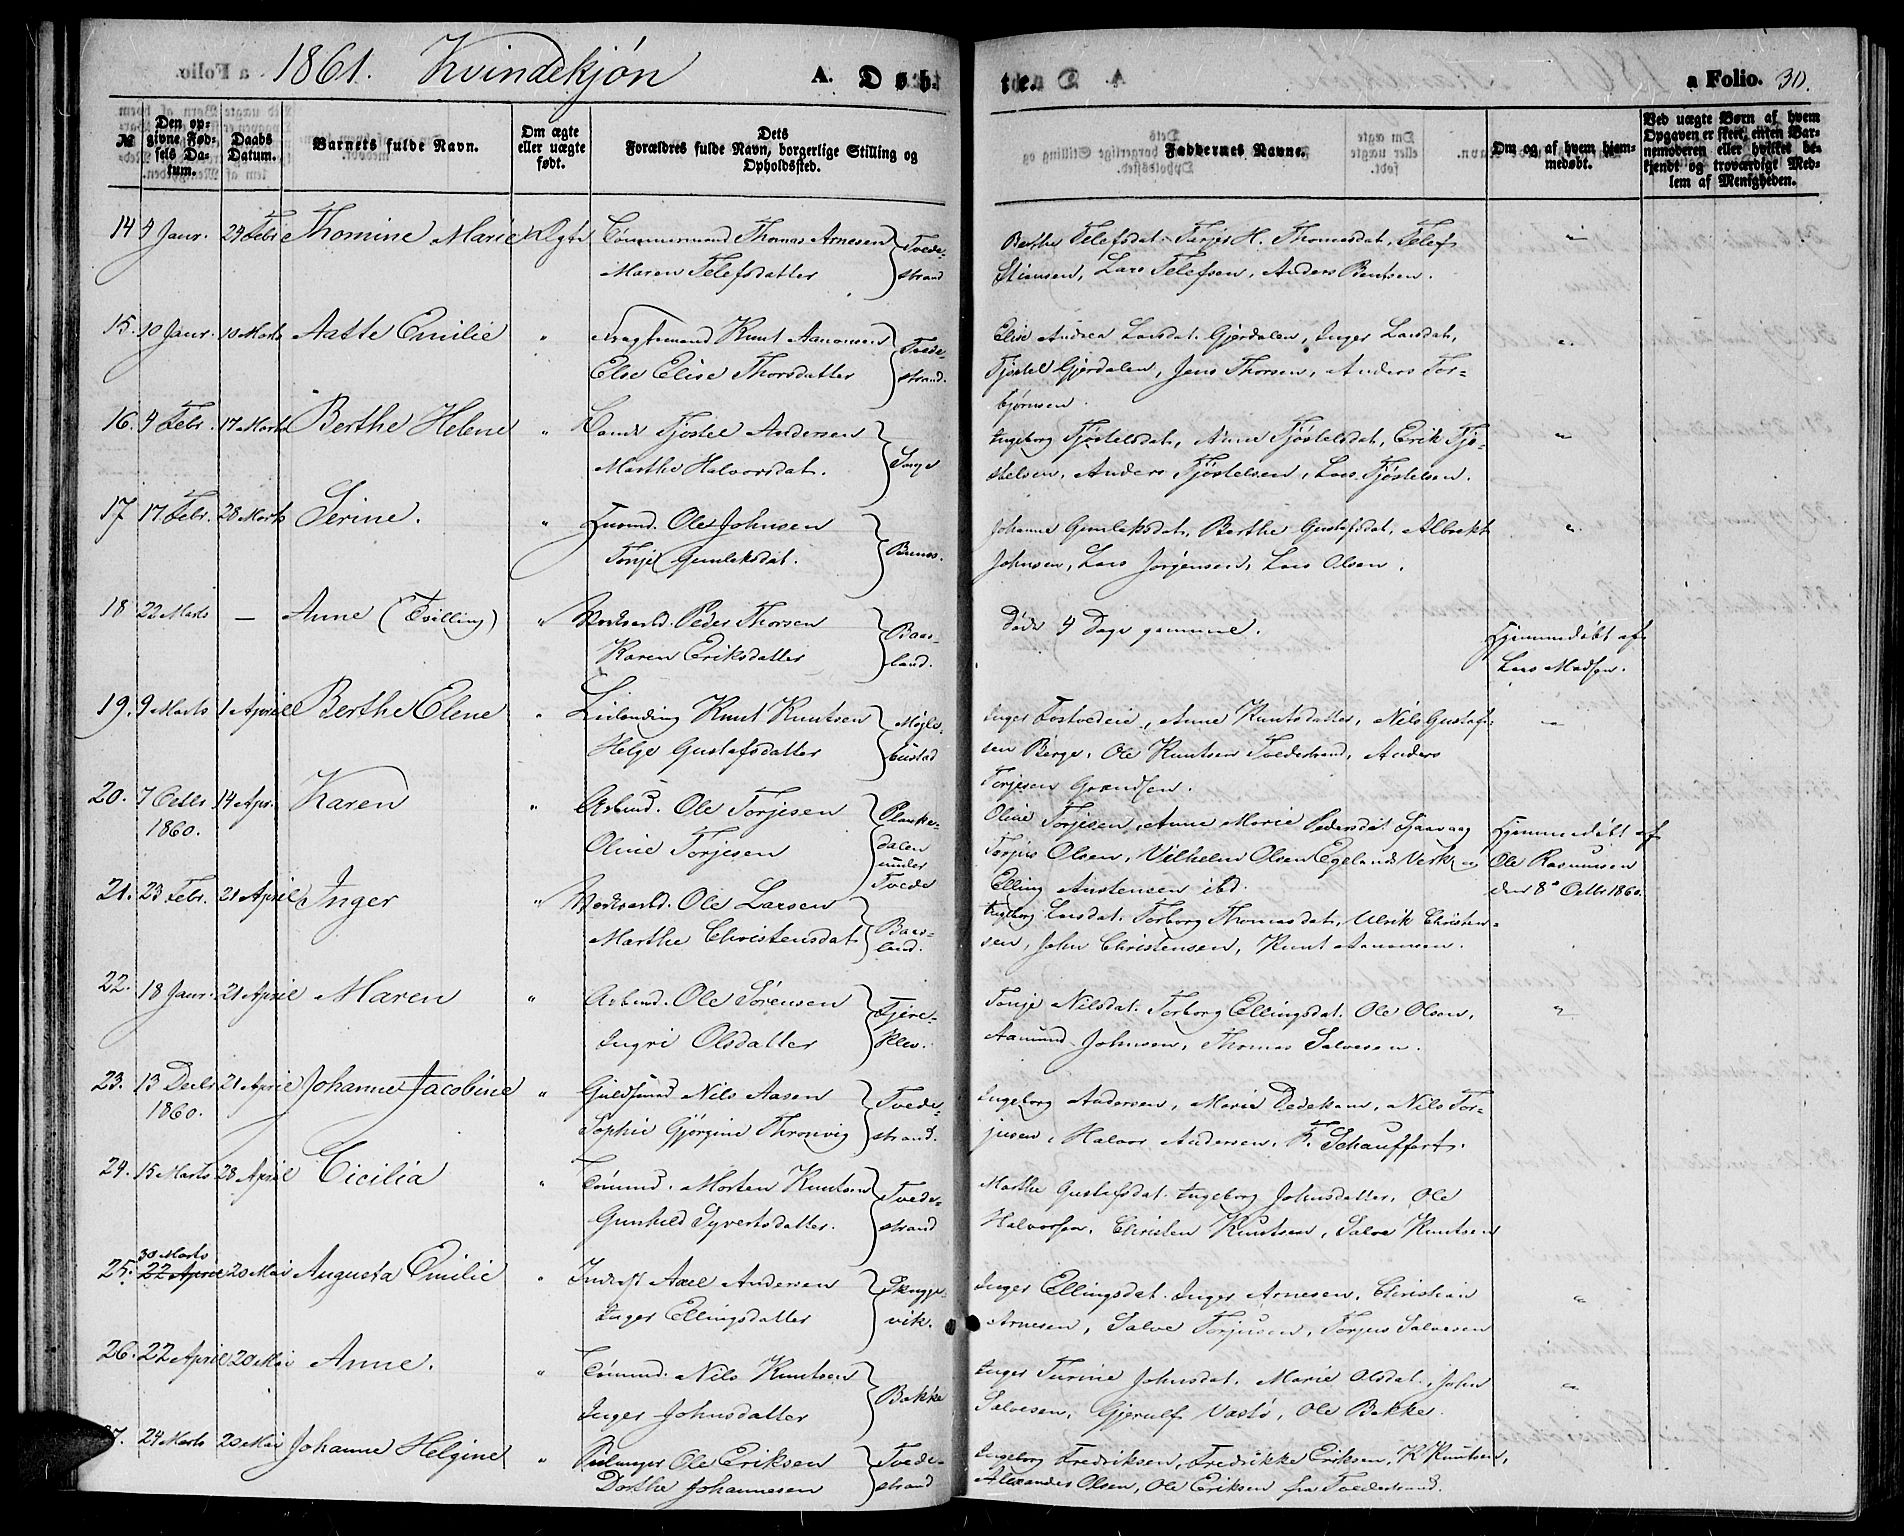 1861. Kvindekjøn A. Døbte. a Folio. 30.
№ Den opgivne Fødsels Datum. Daabs Datum. Barnets fulde Navn. Om ægte eller uægte født. Forældres fulde Navn, borgerlige Stilling og Opholdssted. Faddernes Navne. Om og af hvem hjemmedøbt. Ved uægte Børn af hvem Opgaven er skeet, enten Barnemoderen eller hvilket bekjendt og troværdigt Medlem af Menigheden.
14 4 Janr. 24 Febr Thomine Marie Ægte Tømmermand Thomas Arnesen Tvede- Berthe Telefsdat. Tarjer H. Thomasdat, Telef
Maren Telefsdatter strand Stiansen, Lars Telefsen, Anders Bentsen.
15. 10 Janr. 10 Marts Aatte Emilie " Fragtemand Knut Aanonsen Tvede- Elise Andrea Larsdat. Gjerdalen, Inger Larsdat,
Else Elise Thorsdatter strand. Tjøstel Gjerdalen, Jens Thorsen, Anders Tor-
bjørnsen.
16. 4 Febr. 17 Marts Berthe Helene " Tjøstel Andersen Songe Ingeborg Tjøstelsdat, Anne Tjøstelsdat, Erik Tjø-
Marthe Halvorsdat. stelsen, Anders Tjøstelsen, Lars Tjøstelsen.
17 17 Febr. 28 Marts Serine. " Husmd. Ole Johnsen Johanne Gunleksdat, Berthe Gustafsdat, Albrekt
Tonje Gunleksdat. Johnsen, Lars Jørgensen, Lars Olsen.
18 22 Marts — Anne (Tvilling) " Peder Thorsen Baas- Døde 4 Dage gammel. Hjemmedøbt af
Karen Eriksdatter land. Lars Madsen.
19. 9 Marts 1 April Berthe Elene " Leilending Knut Knutsen Møgle- Inger Fostvedeie, Anne Knutsdatter, Nils Gustaf-
Helge Gustafsdatter bustad sen Berge, Ole Knutsen Tvedestrand, Anders
Torjesen Grandsen.
20. 7 Octbr 14 Apr. Karen " Arbmd. Ole Torjesen Planke- Oline Torjesen, Anne Marie Pedersdat Hjemmedøbt af
1860. Oline Torjesen dalen under Tvede Torjus Olsen, Vilhelm Olsen Egelands Verk Ole Rasmussen
Elling Austensen ibd. den 8de Octbr 1860.
21. 23 Febr. 21 April Inger " Ole Larsen Baas- Ingeborg Larsdat. Torborg Thomasdat, Ulrik Christen-
Marthe Christensdat land. sen, John Christensen, Knut Aanonsen.
22. 18 Janr. 21 April Maren " Arbmd. Ole Sørensen Tjere- Tonje Nilsdat. Torborg Ellingsdat. Ole Olsen,
Ingri Olsdatter klev. Aamund Johnsen, Thomas Salvesen.
23. 13 Decbr 21 April Johanne Jacobine " Guldsmd Nils Aasen Tvede- Ingeborg Andersen, Marie Dedekam, Nils Tor-
1860. Sophie Gjørgine Thronvig strand. jusen, Halvor Andersen, F. Schauffert.
24. 15 Marts 28 April Cicilia " Tømmd. Morten Knutsen Tvede- Marthe Gustafsdat. Ingeborg Johnsdatter, Ole
Gunhild Syvertsdatter. strand Halvorsen, Christen Knutsen, Salve Knutsen
30 Marts
25. 22 April 20 Mai Augusta Emilie " Axel Andersen Skugge- Inger Ellingsdat. Inger Arnesen, Christian
Inger Ellingsdatter vik. Arnesen, Salve Torjusen, Torjus Salvesen
26. 22 April 20 Mai Anne. " Tømmd. Nils Knutsen Bakke Inger Turine Johnsdat. Marie Olsdat. John
Inger Johnsdatter Salvesen, Gjerulf Vastø, Ole Bakke.
27. 24 Marts 20 Mai Johanne Helgine " Ole Eriksen Tvede- Ingeborg Fredriksen, Fredrikke Eriksen, K Knutsen,
Dorthe Johannesen strand Alexander Olsen, Ole Eriksen fra Tvedestrand.